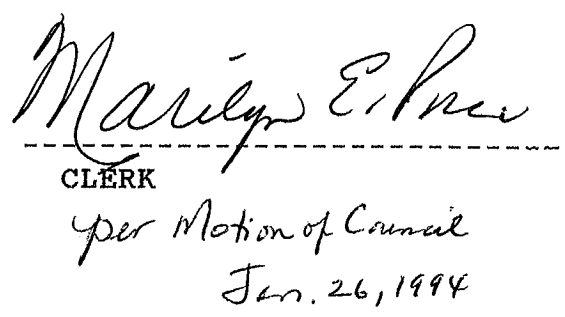 Marilyn E. Price
CLERK
per Motion of Council
Jan. 26, 1994